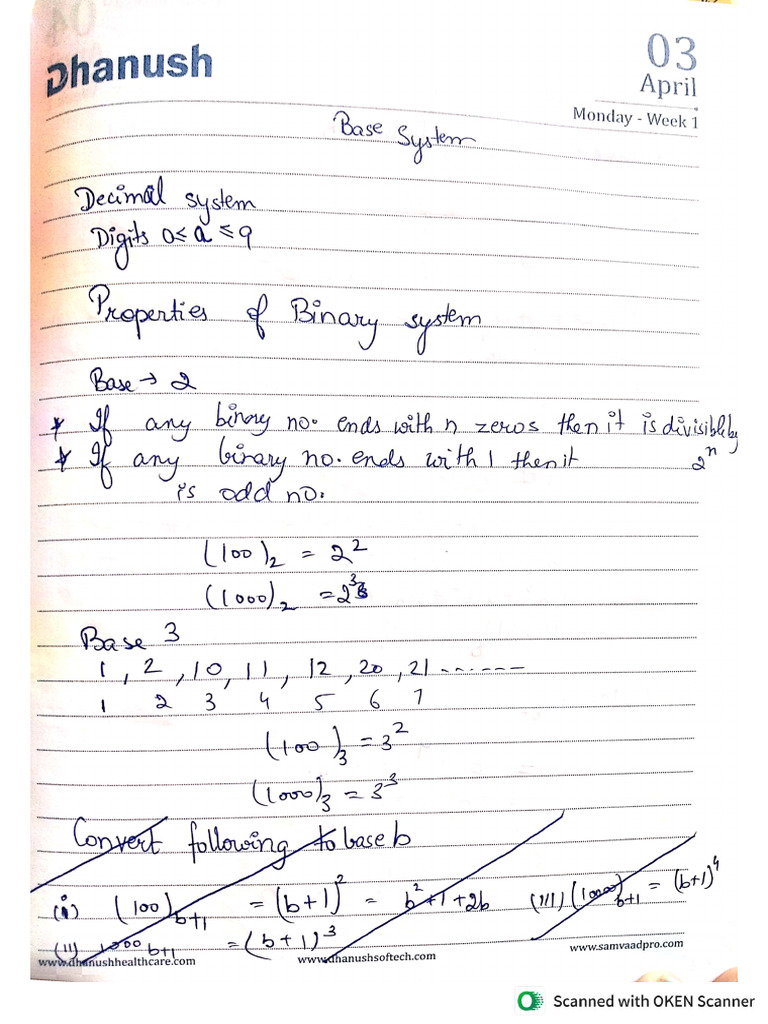 Dhanush
03
April
Monday - Week 1
Base System
Decimal system
Digits 0≤ a ≤ 9
Properties of Binary system
Base → 2
* If any binary no. ends with n zeros then it is divisible by 2ⁿ
* If any binary no. ends with 1 then it
is odd no.
(100)₂ = 2²
(1000)₂ = 2³
Base 3
1, 2, 10, 11, 12, 20, 21 ------
1 2 3 4 5 6 7
(100)₃ = 3²
(1000)₃ = 3³
Convert following to base b
(i) (100)b+1 = (b+1)² = b²+1+2b (iii) (1000)b+1 = (b+1)⁴
(ii) 1000 b+1 = (b+1)³
www.dhanushhealthcare.com www.dhanushsoftech.com www.samvaadpro.com
Scanned with OKEN Scanner